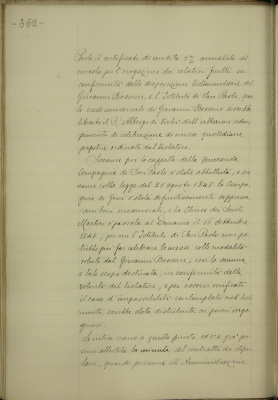 - 362 -
Posto il certificato di rendita 5% annotato del
vincolo per l'erogazione dei relativi frutti in
conformità delle disposizioni testamentarie del
Giovanni Borsone, e l'Istituto di San Paolo, con
le
di celebrazione di messa quotidiana
perpetua ordinata dal testatore.
Siccome poi la cappella della Veneranda
Compagnia di San Paolo è stata abbattuta, e sic
come colla legge del 25 agosto 1848 la Compa
gnia di Gesù è stata definitivamente soppressa
i suoi beni incamerati, e la Chiesa dei Santi
Martiri è passata al Demanio il 16 settembre
1848, per cui l'Istituto di San Paolo non po
trebbe più far celebrare la messa colle modalità
volute dal Giovanni Borsone; così la somma
a tale scopo destinata, in conformità della
volontà del testatore, e per essersi verificato
il caso d'impossibilità contemplato nel testa
mento, sarebbe stata distribuita ai poveri vergo
gnosi.
a questo punto ed era già
allestita la minuta del contratto da stipu
larsi, quando pervenne all'Amministrazione